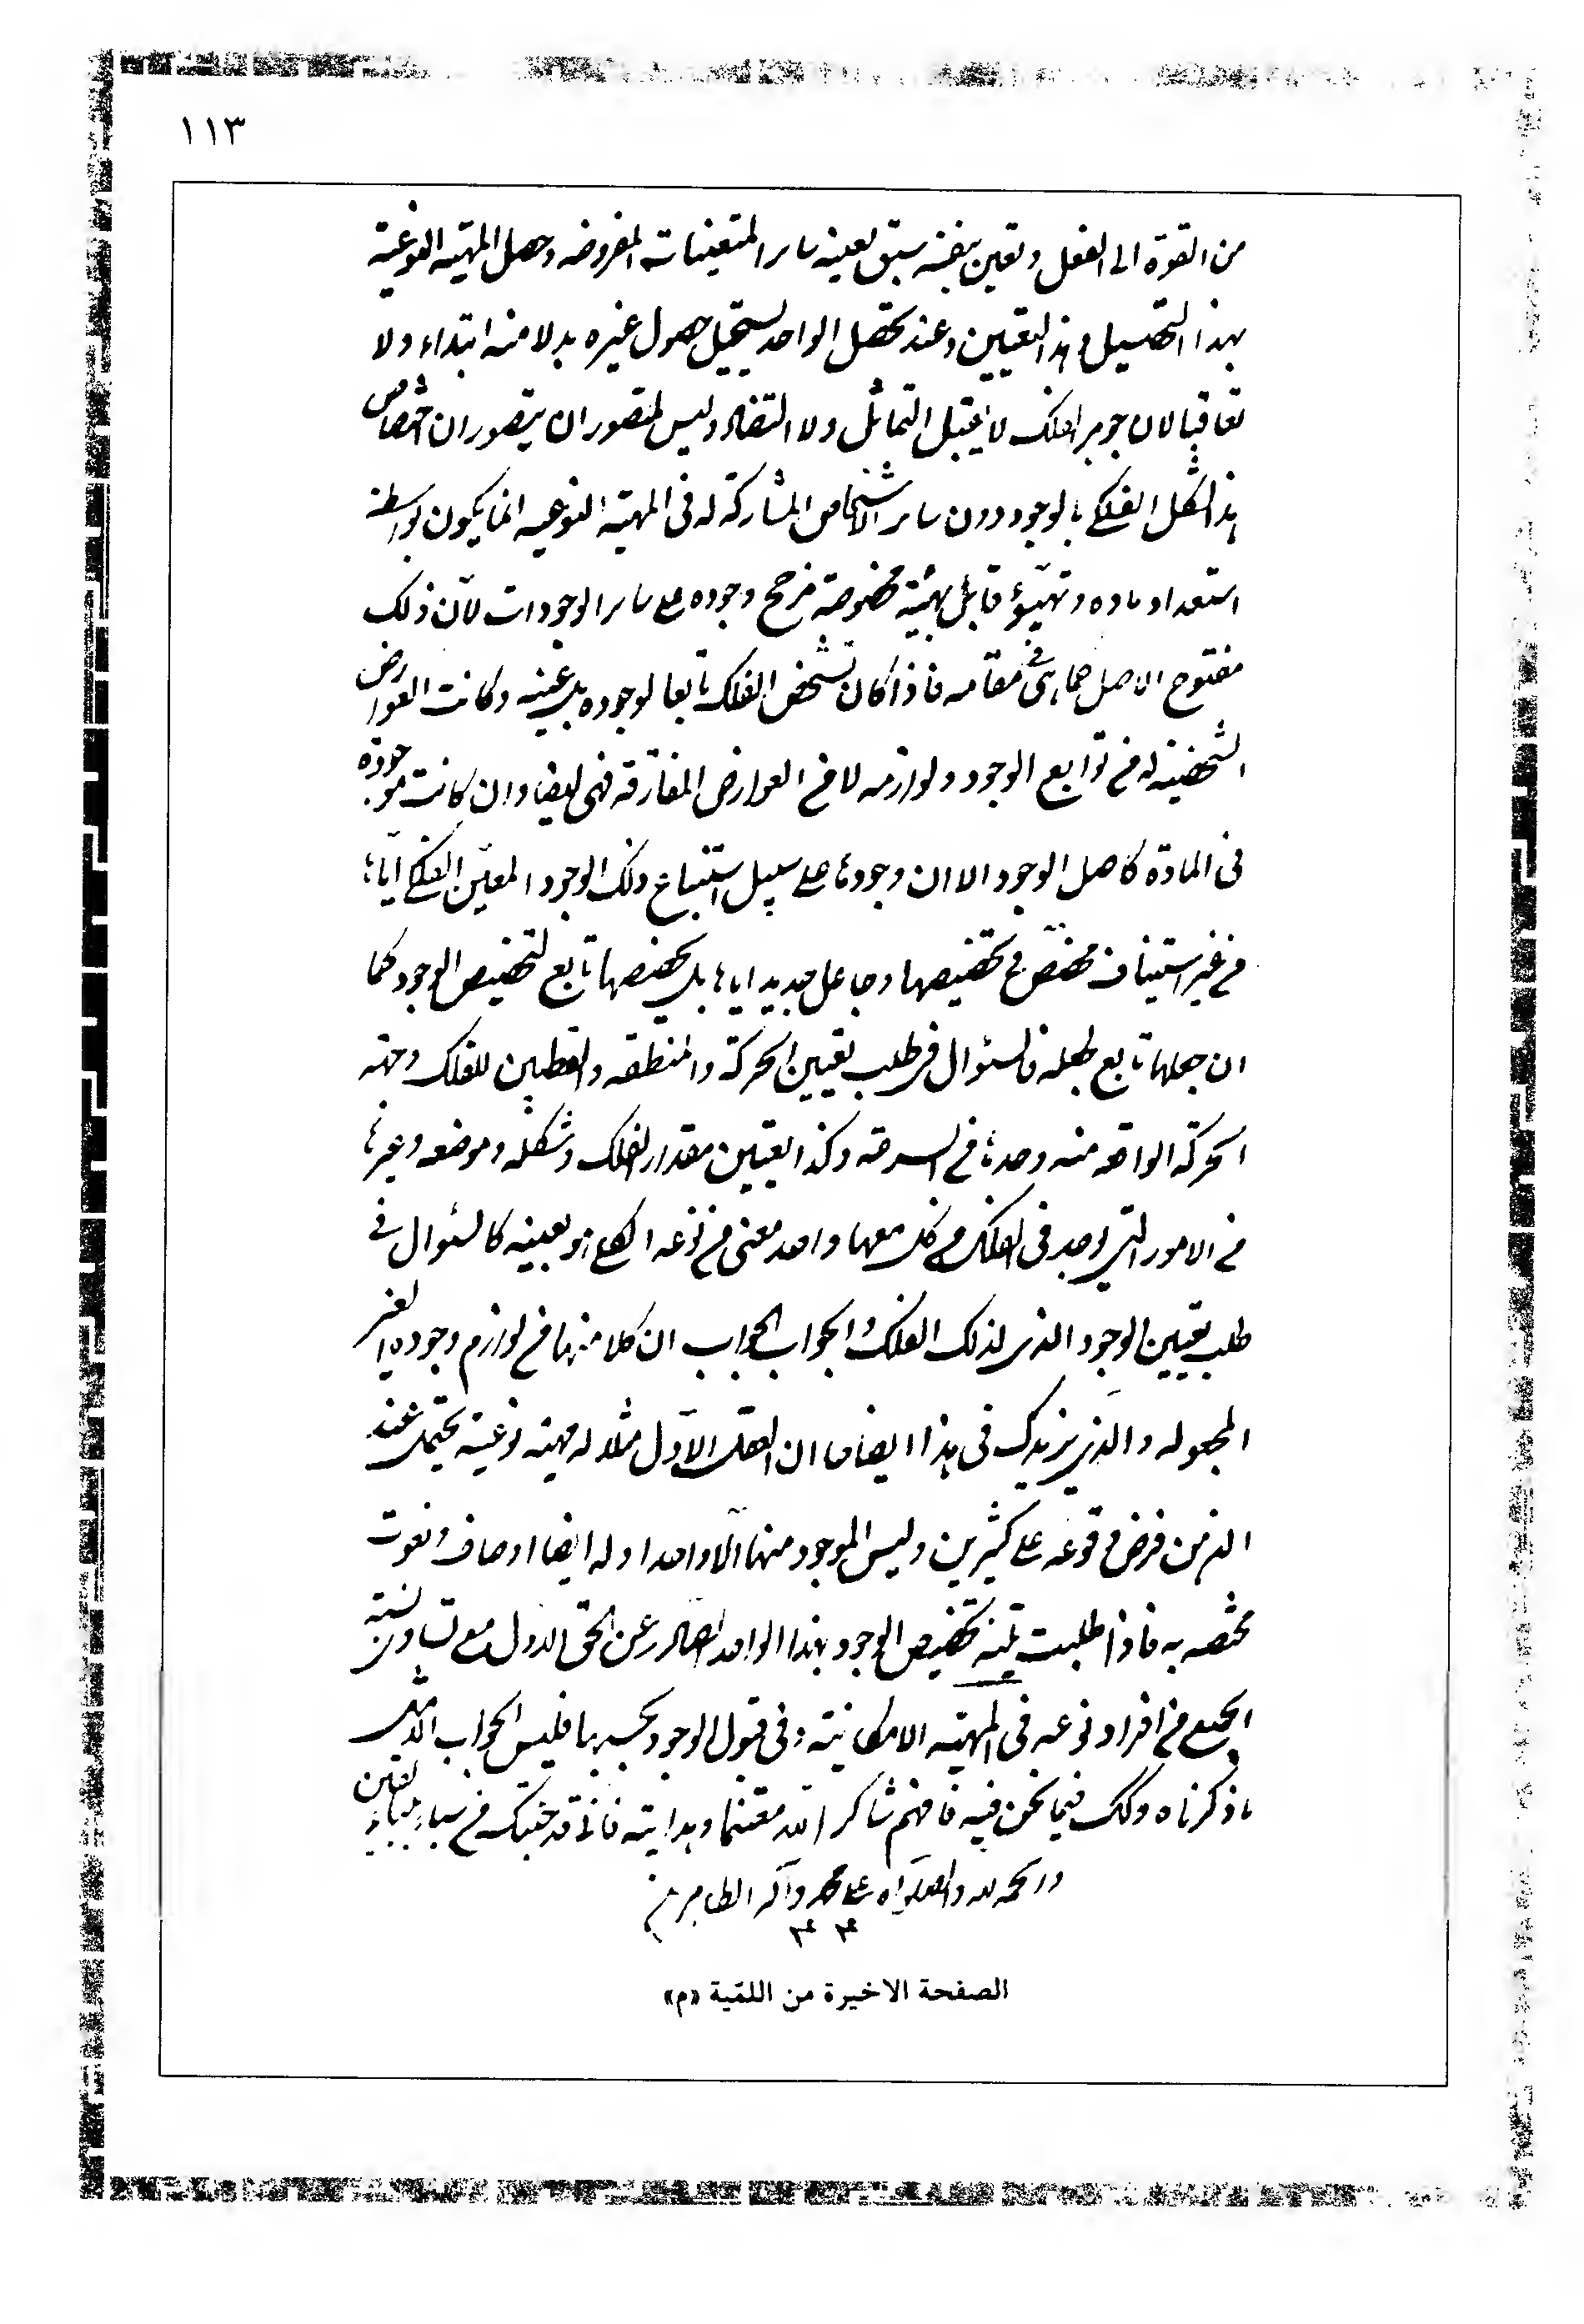 ١١٣
من القوة الى الفعل وتعين بنفسه سبق تعينه ساير المتعينات المفروضه وحصل المهيّة النوعيّة
بهذا التحصيل وهذا التعيين وعند تحصل الواحد يستحيل حصول غيره بدلا منه ابتداء ولا
تعاقبا لان جوهر الفلك لا يقبل التماثل ولا التضاد وليس لمتصور ان يتصور ان اختصاص
هذا الشكل الفلكى بالوجود دون ساير الاشخاص المشاركة له فى المهيّة النوعيه انما يكون بواسطة
استعداد ماده وتهيّؤ قابل بهيئة مخصوصة مرجح وجوده على ساير الوجودات لأن ذلك
مفتوح الاصل كما بين فى مقامه فاذا كان تشخص الفلك تابعا لوجوده بل عينه وكانت العوارض
الشخصية له من توابع الوجود ولوازمه لا من العوارض المفارقة فهى ايضا وان كانت موجودة
فى المادة كاصل الوجود الا ان وجودها على سبيل استتباع ذلك الوجود المعيّن الفلكى ايّاها
من غير استيناف مخصّص فى تخصيصها وجاعل جديد اياها بل تخصصها تابع لتخصيص الوجود كما
ان جعلها تابع لجعله فالسئوال فى طلب تعيين الحركة والمنطقه والقطبين للفلك وجهة
الحركة الواقعه منه وحدها فى السرعه وكذا تعيين مقدار الفلك وشكله وموضعه وغيرها
من الامور التى توجد فى الفلك من كل منها واحد معنى من نوعه الكلى هو بعينه كالسئوال فى
طلب تعيين الوجود الذى لذلك الفلك والجواب الجواب ان كلا منها من لوازم وجوده الغير
المجعوله والذى يزيدك فى هذا ايضاحا ان العقل الاوّل مثلا له مهيّة نوعيّة يحتمل عند
الذهن فرض وقوعه على كثيرين وليس الموجود منها الّا واحدا وله ايضا اوصاف ونعوت
مختصه به فاذا طلبت لمّية تخصيص الوجود بهذا الواحد الصادر عن الحق الاول مع تساوى نسبة
الجميع من افراد نوعه فى المهيّة الامكانيّة وفى قبول الوجود بحسبها فليس الجواب الا مثل
ما ذكرناه وكك فيما نحن فيه فافهم شاكرا لله مغتنما وهدايته فانى قد جئتك من سباء بنباء يقين
والحمد لله والصلوة على محمد وآله الطاهرين
م م
الصفحة الاخيرة من اللقية «م»